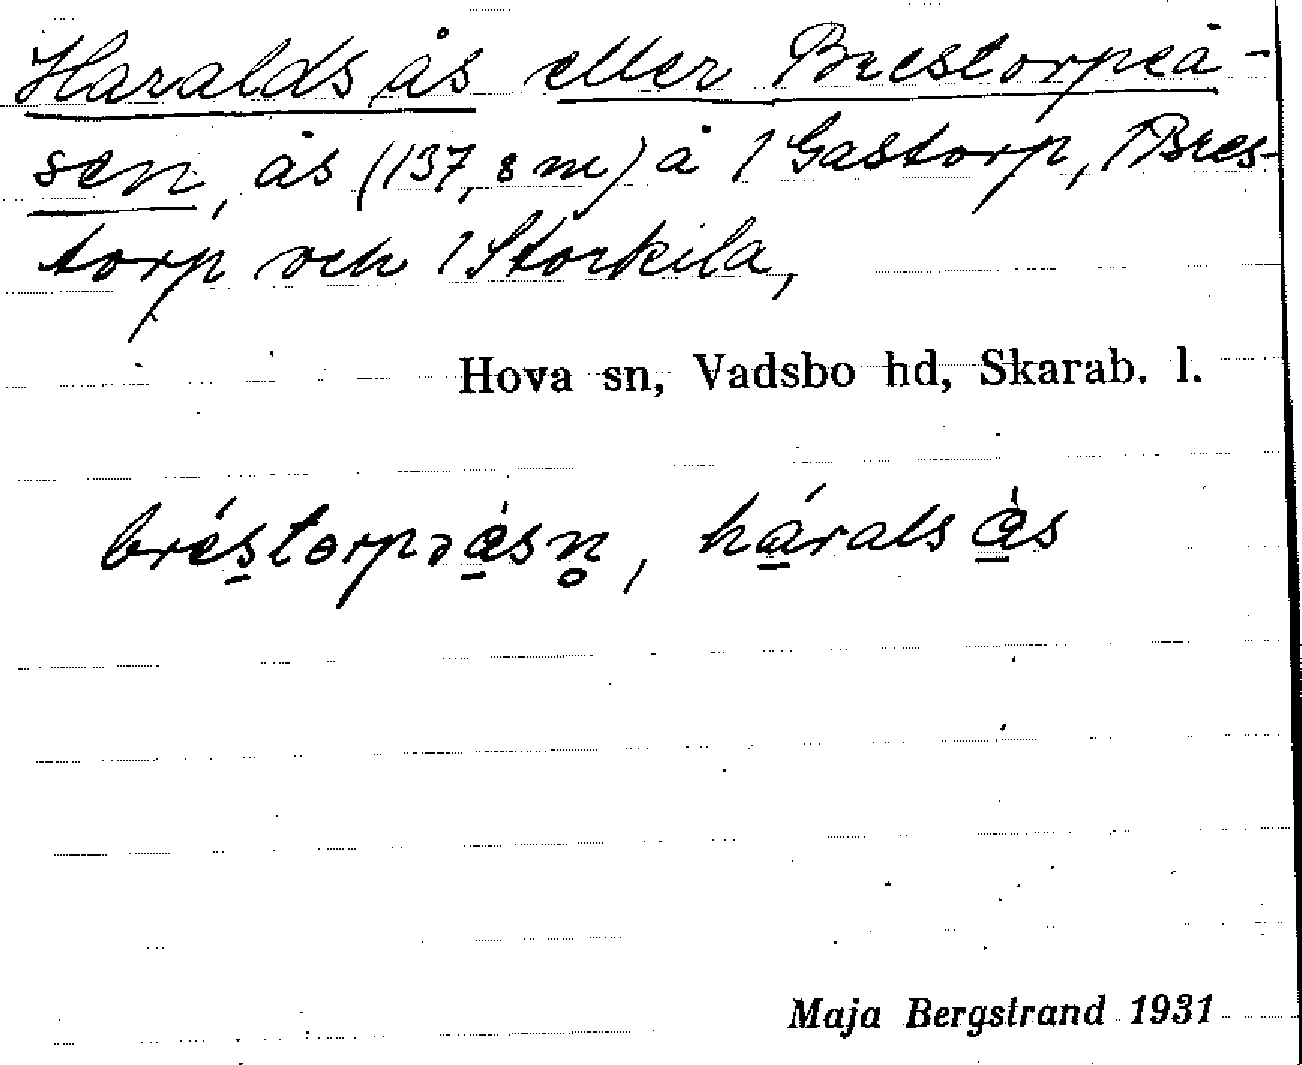 Haralds ås eller Brestorpeå-
sen, ås (137,8 m) å 1 Gastorp, 1 Bres-
torp och 1 Storkila,
Hova sn, Vadsbo hd, Skarab. l.
bréstorpəå̀sn̥, håralså̀s
Maja Bergstrand 1931